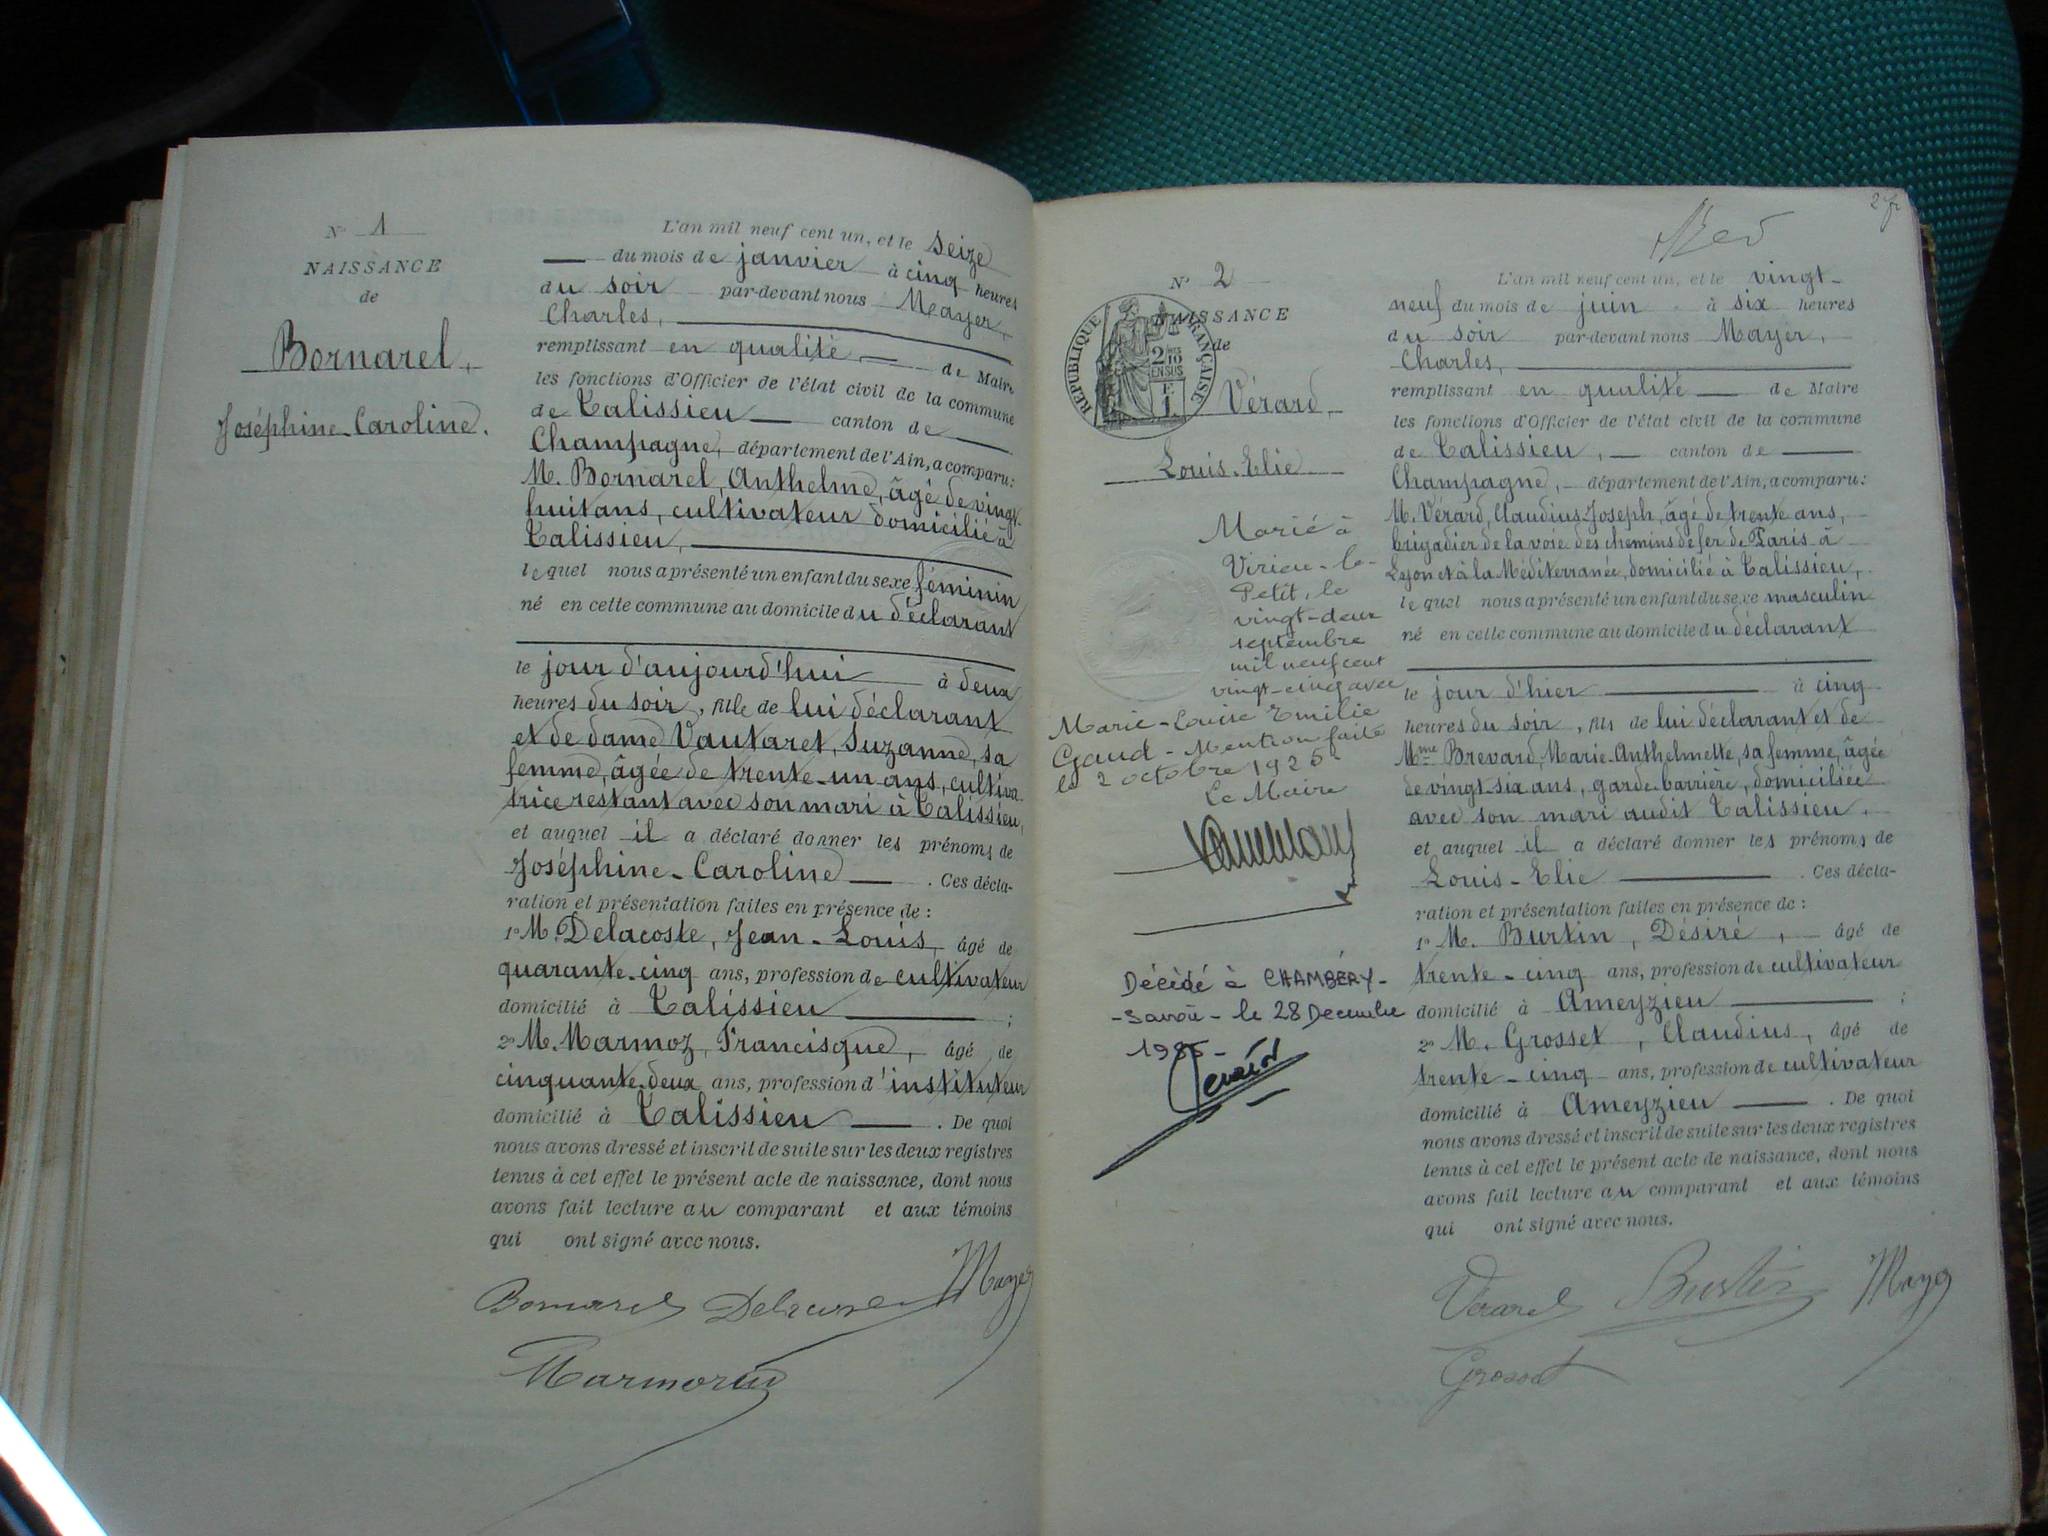 N° 1
NAISSANCE
de
Bornarel,
Joséphine-Caroline.
L'an mil neuf cent un, et le seize
du mois de janvier à cinq heures
du soir par-devant nous Mayer,
Charles,
remplissant en qualité, de Maire
les fonctions d'Officier de l'état civil de la commune
de Talissieu canton de
Champagne, département de l'Ain, a comparu:
M. Bornarel, Anthelme, âgé de vingt-
huit ans, cultivateur domicilié à
Talissieu,
lequel nous a présenté un enfant du sexe féminin
né en cette commune au domicile du déclarant
le jour d'aujourd'hui à deux
heures du soir, fille de lui déclarant
et de dame Vautaret, Suzanne, sa
femme, âgée de trente-un ans, cultiva-
trice restant avec son mari à Talissieu,
et auquel il a déclaré donner les prénoms de
Joséphine-Caroline. Ces décla-
ration et présentation faites en présence de :
1° M. Delacoste, Jean-Louis, âgé de
quarante-cinq ans, profession de cultivateur
domicilié à Talissieu ;
2° M. Marmoz, Francisque, âgé de
cinquante-deux ans, profession d'instituteur
domicilié à Talissieu. De quoi
nous avons dressé et inscrit de suite sur les deux registres
tenus à cet effet le présent acte de naissance, dont nous
avons fait lecture au comparant et aux témoins
qui ont signé avec nous.
Bornarel Mayer
2
N° 2
NAISSANCE
de
RÉPUBLIQUE FRANÇAISE
2 10
EN SUS
Vérard,
Louis-Elie
Marié à
Virieu-le-
Petit, le
vingt-deux
septembre
mil neuf cent
vingt-cinq avec
Marie-Louise Emilie
Mention faite
le 2 octobre 1925
Le Maire
Décédé à CHAMBÉRY-
-Savoie- le 28 Decembre
L'an mil neuf cent un, et le vingt-
neuf du mois de juin à six heures
du soir par-devant nous Mayer,
Charles,
remplissant en qualité de Maire
les fonctions d'Officier de l'état civil de la commune
de Talissieu, canton de
Champagne, département de l'Ain, a comparu:
M. Vérard, Claudius-Joseph, âgé de trente ans,
brigadier de la voie des chemins de fer de Paris à
Lyon et à la Méditerranée, domicilié à Talissieu,
lequel nous a présenté un enfant du sexe masculin
né en cette commune au domicile du déclarant
le jour d'hier à cinq
heures du soir, fils de lui déclarant et de
Mme Brevard, Marie-Anthelmette, sa femme, âgée
de vingt-six ans, garde-barrière, domiciliée
avec son mari audit Talissieu.
et auquel il a déclaré donner les prénoms de
Louis-Elie. Ces décla-
ration et présentation faites en présence de :
1° M. Burtin, Désiré, âgé de
trente-cinq ans, profession de cultivateur
domicilié à Ameyzieu ;
2° M. Grosset, Claudius, âgé de
trente-cinq ans, profession de cultivateur
domicilié à Ameyzieu. De quoi
nous avons dressé et inscrit de suite sur les deux registres
tenus à cet effet le présent acte de naissance, dont nous
avons fait lecture au comparant et aux témoins
qui ont signé avec nous.
Verard Burtin Mayer
Grosset